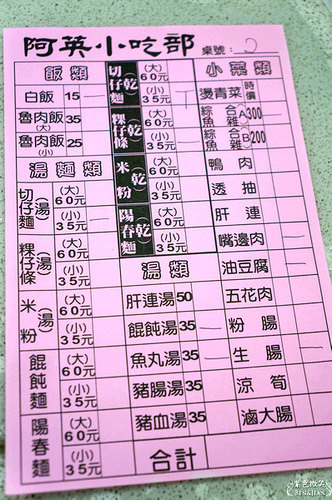 阿英小吃部 桌號：2
飯類
白飯 15
魯肉飯(大) 35
魯肉飯(小) 25
湯麵類
切仔麵 湯 (大)60元
(小)35元
粿仔條 湯 (大)60元
(小)35元
米粉 湯 (大)60元
(小)35元
餛飩麵 (大)60元
(小)35元
陽春麵 (大)60元
(小)35元
切仔麵(乾) (大)60元
(小)35元
粿仔條(乾) (大)60元
(小)35元
米粉 乾 (大)60元
(小)35元
陽春麵(乾) (大)60元
(小)35元
湯類
肝連湯 50
餛飩湯 35
魚丸湯 35
豬腸湯 35
豬血湯 35
合計
小菜類
燙青菜 時價
綜合魚雜 A 300
綜合魚雜 B 200
鴨肉
透抽
肝連
嘴邊肉
油豆腐
五花肉
粉腸
生腸
涼筍
滷大腸
紫色微笑